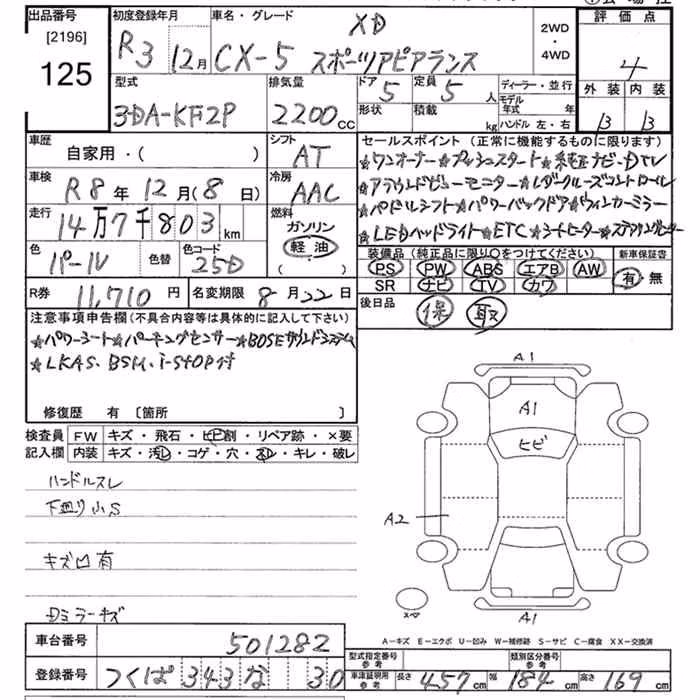 出品番号 [2196] 125
初度登録年月 R3 12月
車名・グレード XD
CX-5 スポーツアピアランス
2WD・4WD
評価点 4
外装 B 内装 B
型式 3DA-KF2P
排気量 2200cc
ドア 5 定員 5人
形状 積載 kg
ディーラー・並行
モデル年式 年
ハンドル 左・右
車歴 自家用・( )
シフト AT
車検 R8年12月(8日)
冷房 AAC
走行 14万7千803km
燃料 ガソリン 軽油 ( ・ )
色 パール 色替 色コード 25D
R券 11,710円 名変期限 8月22日
セールスポイント(正常に機能するものに限ります)
☆ワンオーナー☆プッシュスタート☆純正ナビ・DTV
☆アラウンドビューモニター☆レダクルーズコントロール
☆パドルシフト☆パワーバックドア☆ウインカーミラー
☆LEDヘッドライト☆ETC☆シートヒーター☆ステアリングヒーター
装備品(純正品に限り○をつけてください) 新車保証書
PS PW ABS エアB AW
SR ナビ TV カワ
有 無
後日品 保 取
注意事項申告欄(不具合内容等は具体的に記入して下さい)
☆パワーシート☆パーキングセンサー☆BOSEサウンドシステム
☆LKAS、BSM、i-STOP付
修復歴 有 〔箇所 〕
検査員記入欄
FW キズ・飛石・ヒビ割・リペア跡・×要
内装 キズ・汚レ・コゲ・穴・スレ・キレ・破レ
ハンドルスレ
下廻り小S
キズ口有
Dミラーキズ
A1
A1
ヒビ
A2
スペア
A1
A−キズ E−エクボ U−凹み W−補修跡 S−サビ C−腐食 XX−交換済
車台番号 501282
登録番号 つくば 343 な 30
型式指定番号 参考 類別区分番号 参考
車庫証明用 参考 長さ 457cm 幅 184cm 高さ 169cm